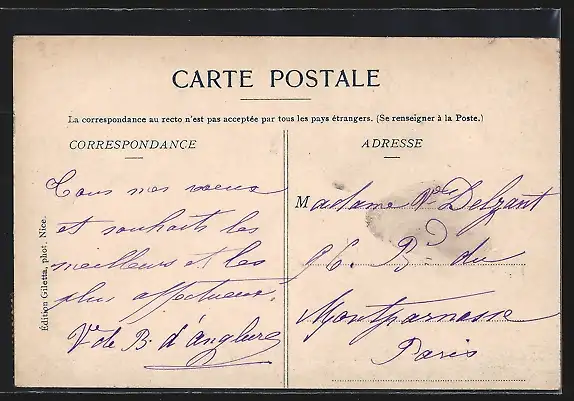 CARTE POSTALE
La correspondance au recto n'est pas acceptée par tous les pays étrangers. (Se renseigner à la Poste.)
CORRESPONDANCE
Tous nos vœux
et souhaits les
meilleurs et les
plus affectueux.
Vte de B. d'Anglure
Édition Giletta, phot. Nice.
ADRESSE
Madame Ve Delzant
96. Bd du
Montparnasse
Paris